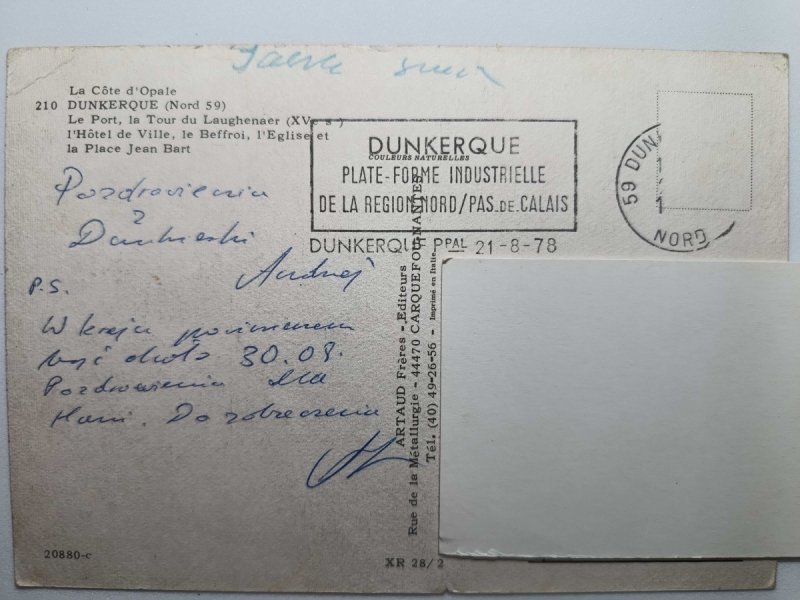 La Côte d'Opale
210 DUNKERQUE (Nord 59)
Le Port, la Tour du Laughenaer (XVe s)
l'Hôtel de Ville, le Beffroi, l'Eglise et
la Place Jean Bart
DUNKERQUE
COULEURS NATURELLES
PLATE-FORME INDUSTRIELLE
DE LA REGION NORD/PAS DE CALAIS
DUNKERQUE PPAL 21-8-78
59 DUN
NORD
Pozdrowienia
z
Dunkierki
Andrzej
P.S.
W kraju powinienem
być około 30.08.
Pozdrowienia dla
Hani. Do zobaczenia
ARTAUD Frères - Editeurs
Rue de la Métallurgie - 44470 CARQUEFOU-NANTES
Tél. (40) 49-26-56 - Imprimé en Italie
20880-c
XR 28/2